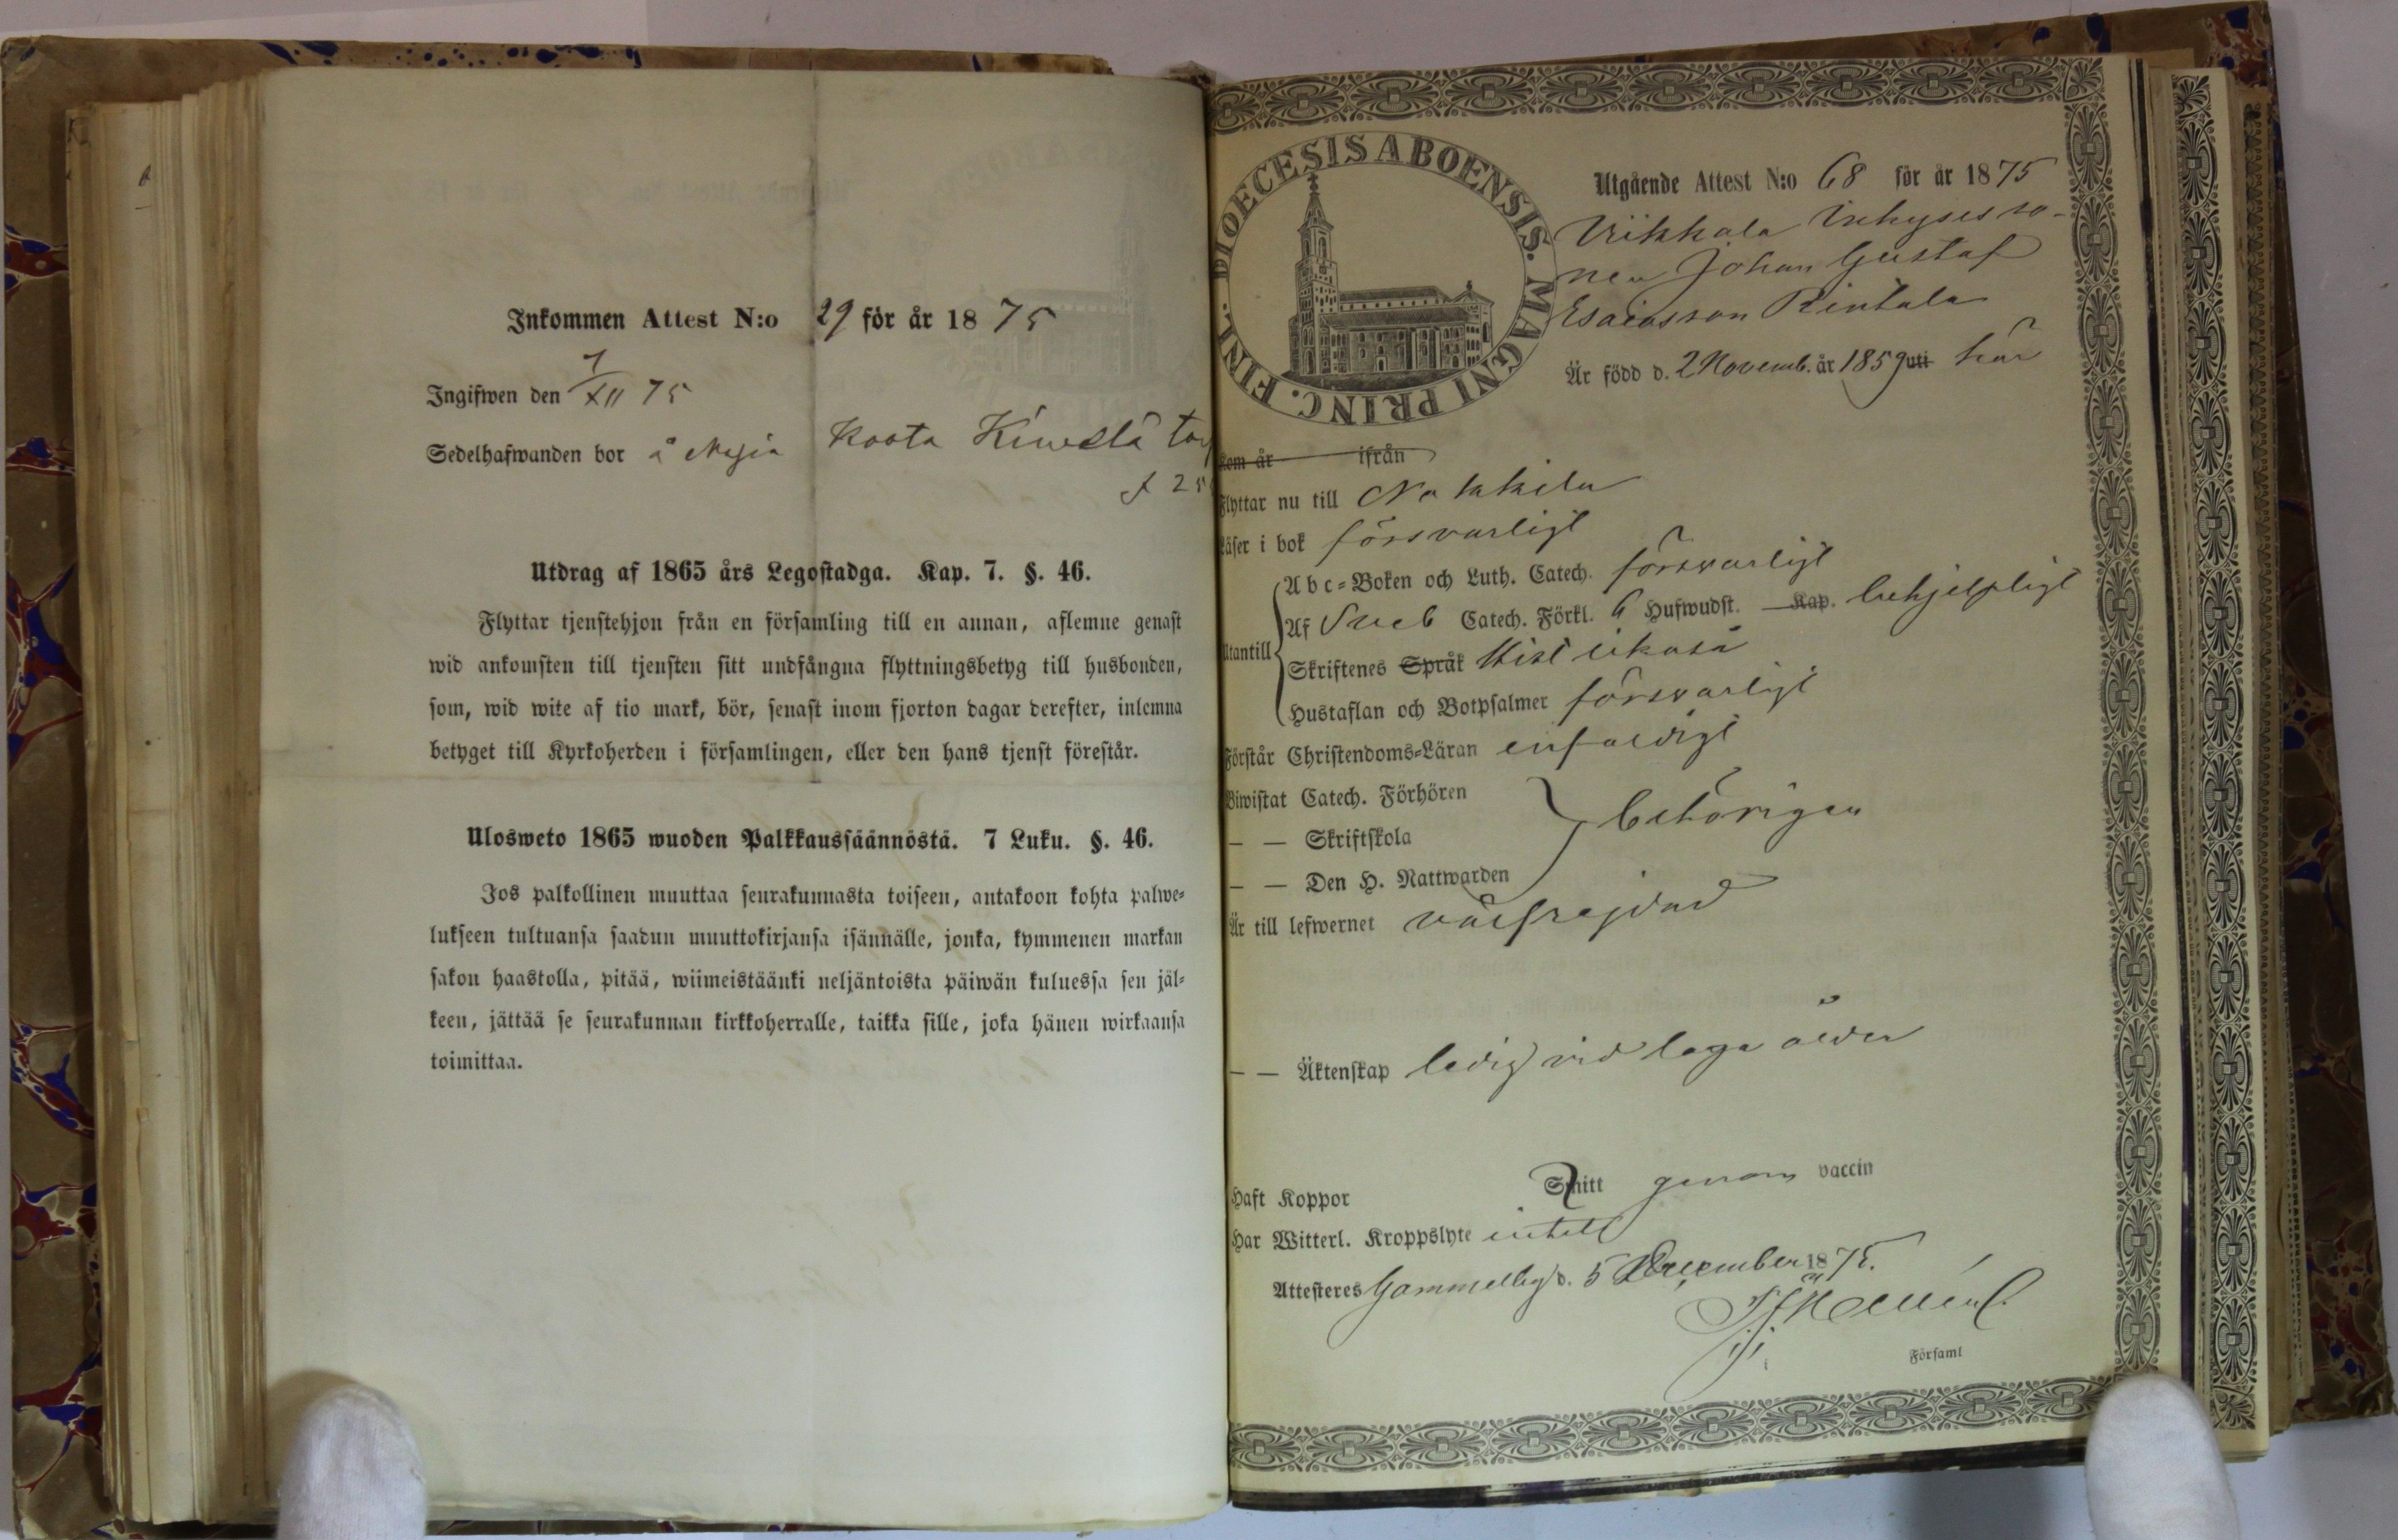 Inkommen Attest N:o 29 för år 1875
Ingifwen den 7/XII 75
Sedelhafwanden bor å Koota
Utdrag af 1865 års Legostadga. Kap. 7. §. 46.
Flyttar tjenstehjon från en församling till en annan, aflemne genast
wid ankomsten till tjensten sitt undfångna flyttningsbetyg till husbonden,
som, wid wite af tio mark, bör, senast inom fjorton dagar derefter, inlemna
betyget till Kyrkoherden i församlingen, eller den hans tjenst förestår.
Ulosweto 1865 wuoden Palkkaussäännöstä. 7 Luku. §. 46.
Jos palkollinen muuttaa seurakunnasta toiseen, antakoon kohta palwe-
lukseen tultuansa saadun muuttokirjansa isännälle, jonka, kymmenen markan
sakon haastolla, pitää, wiimeistäänki neljäntoista päiwän kuluessa sen jäl-
keen, jättää se seurakunnan kirkkoherralle, taikka sille, joka hänen wirkaansa
toimittaa.
DIOECESIS ABOENSIS. MAGNI PRINC. FINL.
Utgående Attest N:o 68 för år 1875
Viikkala Inhysesso-
nen Johan Gustaf
Esaiasson Rintala
Är född d. 2 Novemb. år 1859 uti här
Kom år ifrån
Flyttar nu till Nakkila
Läser i bok försvarligt
Utantill
Abc-Boken och Luth. Catech. försvarligt
Af Sveb Catech. Förkl. 6 Hufwudst. Kap. behjelpligt
Skriftenes Språk
Hustaflan och Botpsalmer försvarligt
Förstår Christendoms-Läran enfaldigt
Biwistat Catech. Förhören
— — Skriftskola behörigen
— — Den H. Nattwarden
Är till lefwernet välfrejdad
— — Äktenskap ledig vid laga ålder
Haft Koppor Smitt genom vaccin
Har Witterl. Kroppslyte intet
Attesteres Gammelby d. 5 December 1875.
Församl